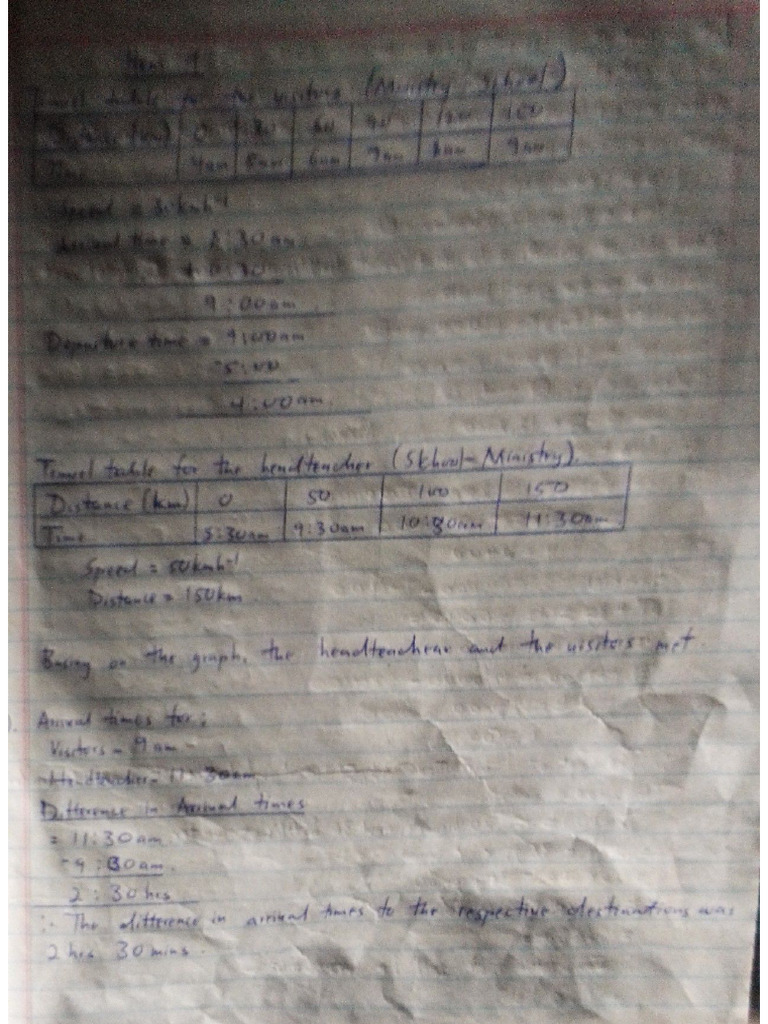 Item 1
Travel table for the visitors (Ministry-School)
Distance (km) 0 30 60 90 120 150
Time 4am 5am 6am 7am 8am 9am
Speed = 30kmh⁻¹
Arrival time = 8:30am
+ 0:30
9:00am
Departure time = 9:00am
-5:00
4:00am.
Travel table for the headteacher (School-Ministry).
Distance (km) 0 50 100 150
Time 8:30am 9:30am 10:30am 11:30am
Speed = 50kmh⁻¹
Distance = 150km
Basing on the graph, the headteacher and the visitors met
Arrival times for:
Visitors - 9am -
Headteacher - 11:30am
Difference in Arrival times
= 11:30am
-9:00am.
2:30hrs
∴ The difference in arrival times to the respective destinations was
2hrs 30mins.